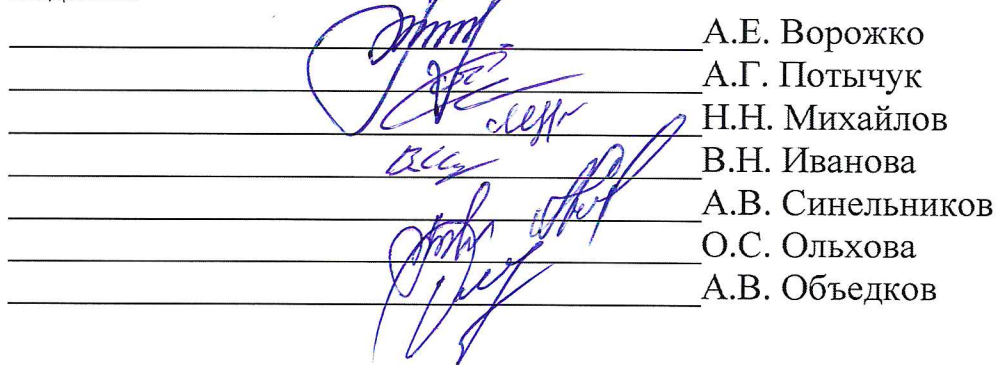 А.Е. Ворожко
А.Г. Потычук
Н.Н. Михайлов
В.Н. Иванова
А.В. Синельников
О.С. Ольхова
А.В. Объедков